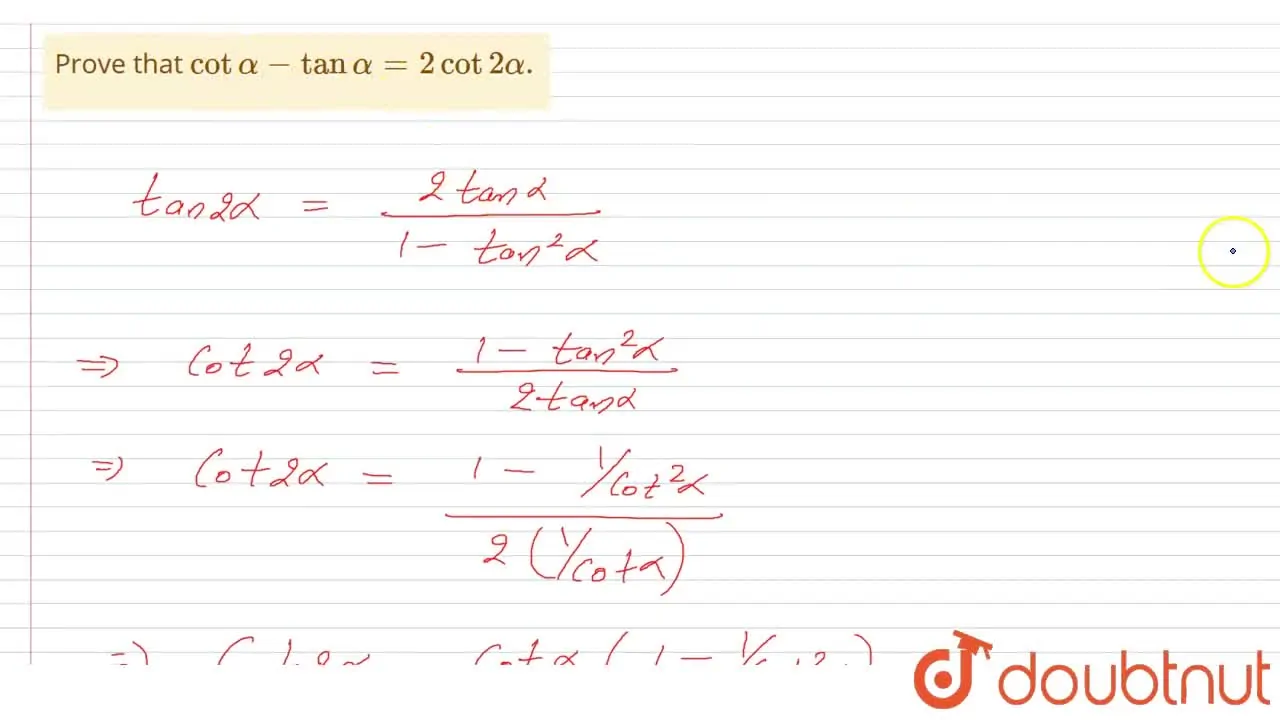 Prove that cot α − tan α = 2 cot 2α.
tan2α = 2tanα / 1 − tan²α
⇒ Cot2α = 1 − tan²α / 2tanα
⇒ Cot2α = 1 − 1/Cot²α / 2(1/Cotα)
⇒ Cot2α Cotα(1 − 1/
doubtnut